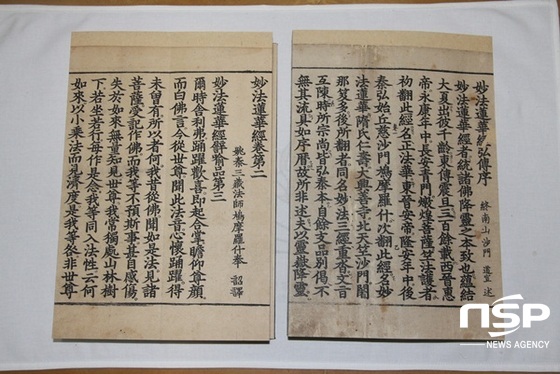 妙法蓮華經弘傳序 終南山 沙門 道宣 述
妙法蓮華經者統諸佛降靈之本致也蘊結
大夏出彼千齡東傳震旦三百餘載西晉惠
帝永康年中長安青門燉煌菩薩竺法護者
初翻此經名正法華東晉安帝隆安年中後
秦弘始丘慈沙門鳩摩羅什次翻此經名妙
法蓮華隋氏仁壽大興善寺北天竺沙門闍
那笈多後所翻者同名妙法三經重沓文旨
互陳時所宗尚皆弘秦本自餘支品別偈不
無其流具如序曆故所非述夫以靈嶽降靈
妙法蓮華經卷第二
姚秦三藏法師鳩摩羅什奉 詔譯
妙法蓮華經譬喻品第三
爾時舍利弗踊躍歡喜即起合掌瞻仰尊顏
而白佛言今從世尊聞此法音心懷踊躍得
未曾有所以者何我昔從佛聞如是法見諸
菩薩受記作佛而我等不預斯事甚自感傷
失於如來無量知見世尊我常獨處山林樹
下若坐若行每作是念我等同入法性云何
如來以小乘法而見濟度是我等咎非世尊
NSP
NEWS AGENCY